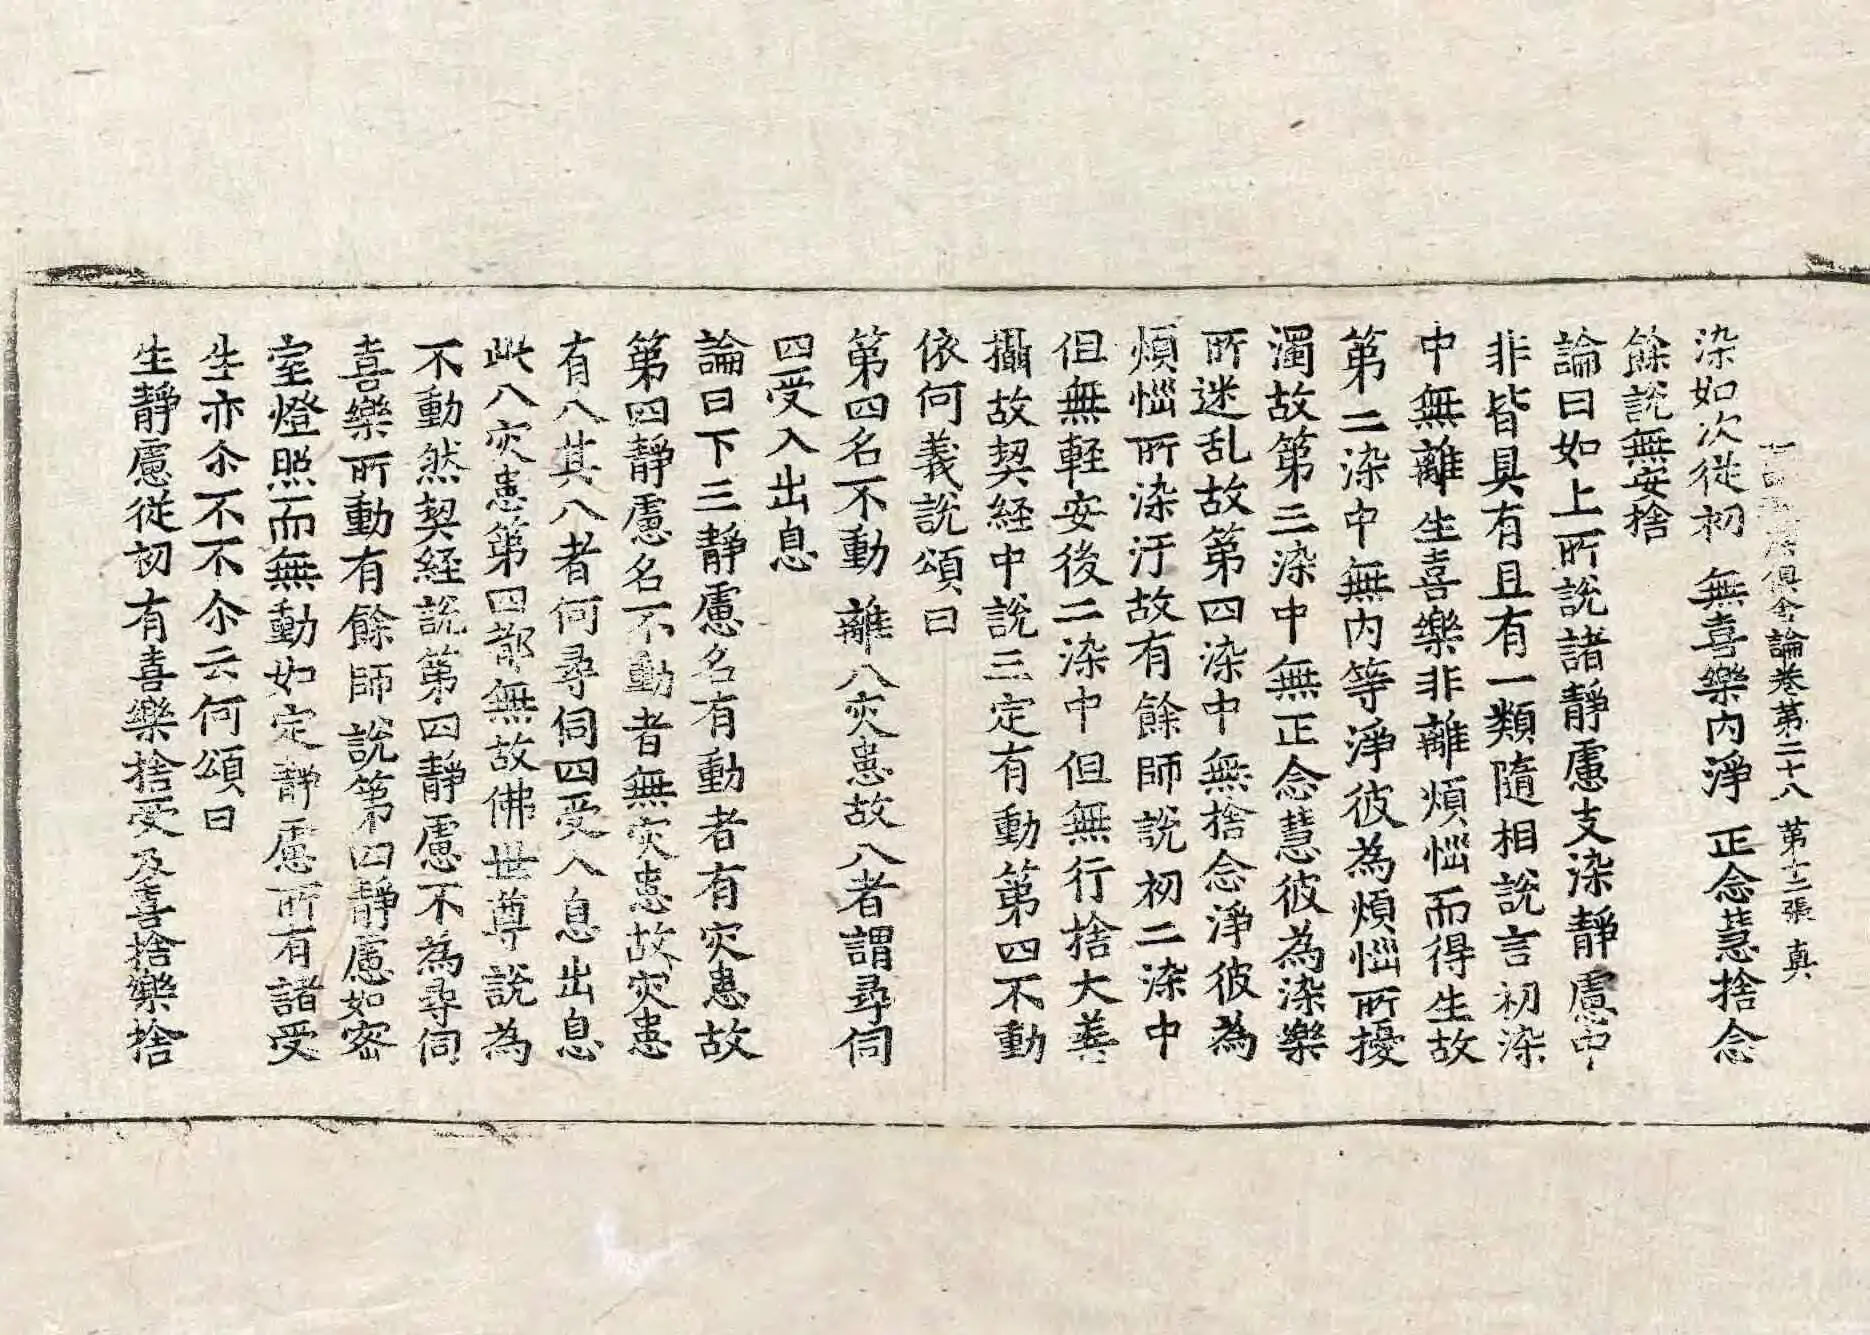 俱舍論卷第二十八 第十二張 真
染如次從初 無喜樂內淨 正念慧捨念
餘說無安捨
論曰如上所說諸靜慮支染靜慮中
非皆具有且有一類隨相說言初染
中無離生喜樂非離煩惱而得生故
第二染中無內等淨彼為煩惱所擾
濁故第三染中無正念慧彼為染樂
所迷乱故第四染中無捨念淨彼為
煩惱所染汙故有餘師說初二染中
但無輕安後二染中但無行捨大善
攝故契経中說三定有動第四不動
依何義說頌曰
第四名不動 離八灾患故八者謂尋伺
四受入出息
論曰下三靜慮名有動者有灾患故
第四靜慮名不動者無灾患故灾患
有八其八者何尋伺四受入息出息
此八灾患第四都無故佛世尊說為
不動然契経說第四靜慮不為尋伺
喜樂所動有餘師說第四靜慮如密
室燈照而無動如定靜慮所有諸受
生亦尒不不尒云何頌曰
生靜慮從初有喜樂捨受及喜捨樂捨